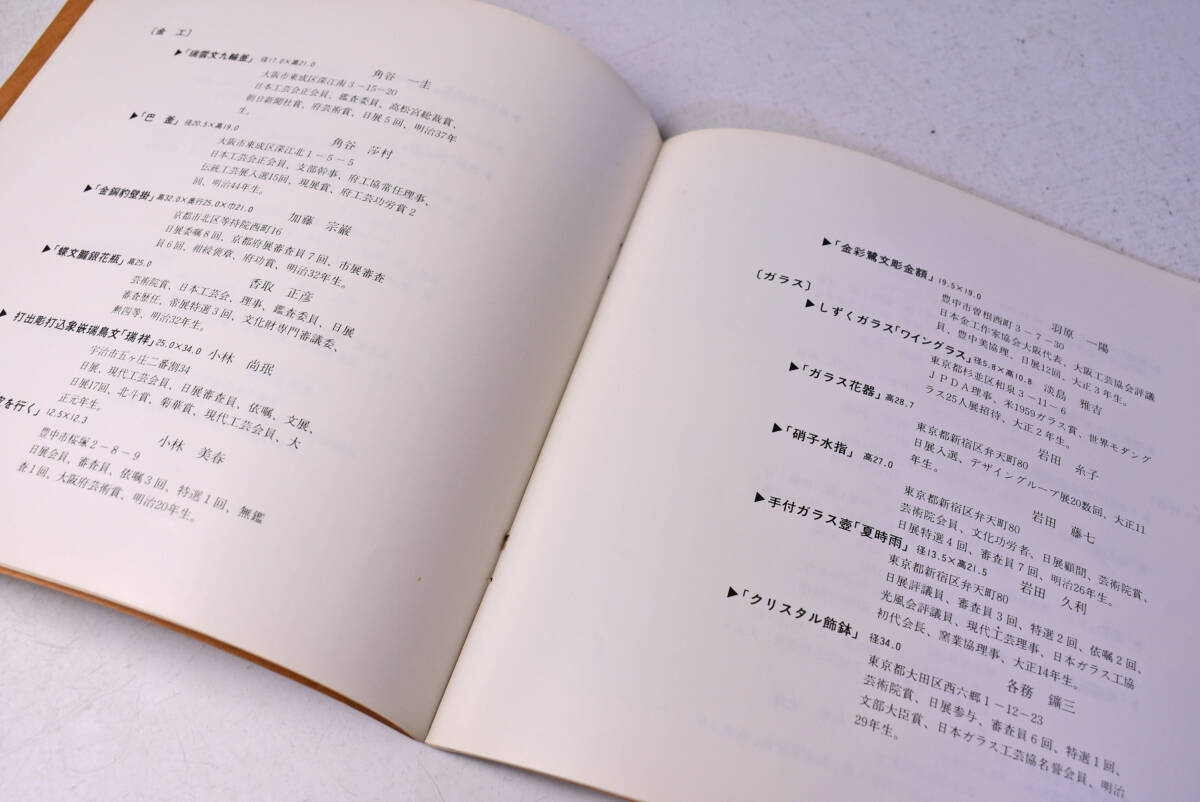 〔金 工〕
▶「瑞雲文九輪釜」径17.0×高21.0
角谷 一圭
大阪市東成区深江南3-15-20
日本工芸会正会員、鑑査委員、高松宮総裁賞、
朝日新聞社賞、府芸術賞、日展5回、明治37年
生。
▶「巴 釜」径20.5×高19.0
角谷 莎村
大阪市東成区深江北1-5-5
日本工芸会正会員、支部幹事、府工協常任理事、
伝統工芸展入選15回、現展賞、府工芸功労賞2
回、明治44年生。
▶「金銅豹壁掛」高32.0×奥行25.0×巾21.0
加藤 宗巌
京都市北区等持院西町16
日展委嘱8回、京都府展審査員7回、市展審査
員6回、紺綬褒章、府功賞、明治32年生。
▶「蝶文朧銀花瓶」高25.0
香取 正彦
芸術院賞、日本工芸会、理事、鑑査委員、日展
審査歴任、帝展特選3回、文化財専門審議委、
勲四等、明治32年生。
▶打出彫打込象嵌瑞鳥文「瑞祥」25.0×34.0
小林 尚珉
宇治市五ヶ庄二番割34
日展、現代工芸会員、日展審査員、依嘱、文展、
日展17回、北斗賞、菊華賞、現代工芸会員、大
正元年生。
を行く」12.5×12.3
小林 美春
豊中市桜塚2-8-9
日展会員、審査員、依嘱3回、特選1回、無鑑
査1回、大阪府芸術賞、明治20年生。
▶「金彩鷺文彫金額」19.5×19.0
羽原 一陽
豊中市曽根西町3-7-30
日本金工作家協会大阪代表、大阪工芸協会評議
員、豊中美協理、日展12回、大正3年生。
〔ガラス〕
▶しずくガラス「ワイングラス」径5.8×高10.8
淡島 雅吉
東京都杉並区和泉3-11-6
JPDA理事、米1959ガラス賞、世界モダング
ラス25人展招待、大正2年生。
▶「ガラス花器」高28.7
岩田 糸子
東京都新宿区弁天町80
日展入選、デザイングループ展20数回、大正11
年生。
▶「硝子水指」高27.0
岩田 藤七
東京都新宿区弁天町80
芸術院会員、文化功労者、日展顧問、芸術院賞、
日展特選4回、審査員7回、明治26年生。
▶手付ガラス壺「夏時雨」径13.5×高21.5
岩田 久利
東京都新宿区弁天町80
日展評議員、審査員3回、特選2回、依嘱2回、
光風会評議員、現代工芸理事、日本ガラス工協
初代会長、窯業協理事、大正14年生。
▶「クリスタル飾鉢」径34.0
各務 鑛三
東京都大田区西六郷1-12-23
芸術院賞、日展参与、審査員6回、特選1回、
文部大臣賞、日本ガラス工芸協名誉会員、明治
29年生。